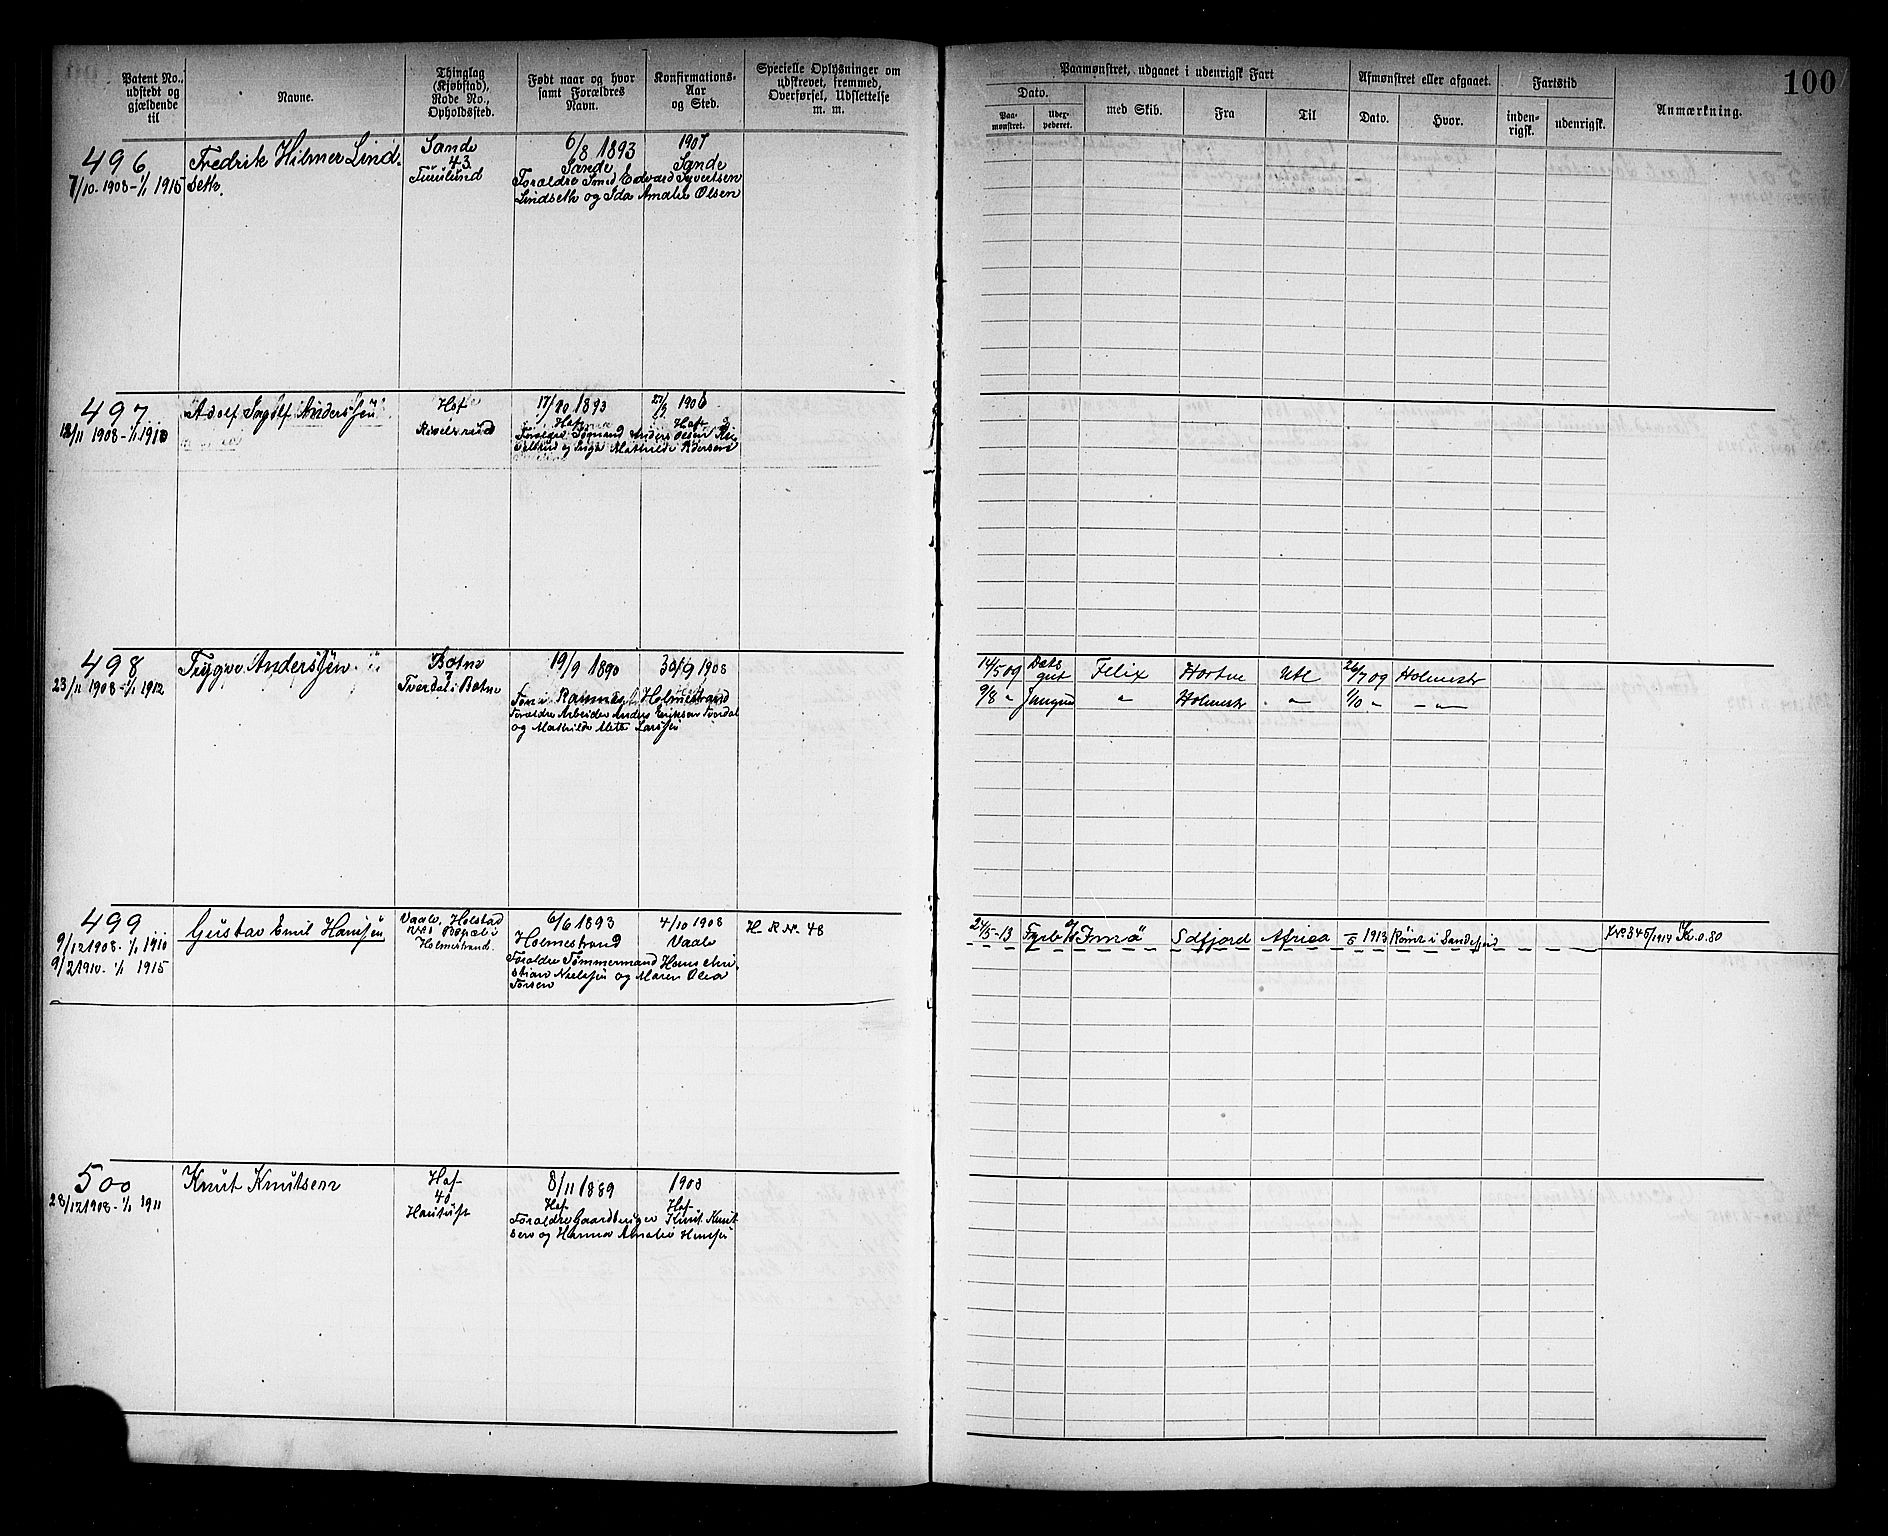 Patent No.,
udstedt og
gjældende
til
Navne.
Thinglag
(Kjøbstad),
Rode No.,
Opholdssted.
Født naar og hvor
samt Forældres
Navn.
Konfirmations-
Aar
og Sted.
Specielle Oplysninger om
udstrevet, fremmed,
Overførsel, Udslettelse
m. m.
Paamønstret, udgaaet i udenrigsk Fart
Dato.
Paa-
mønstret.
med Skib.
Fra
Til
Afmønstret eller afgaaet.
Dato.
Hvor.
Fartstid
inden-
rigsk.
udenrigsk.
Anmærkning.
100
496
7/10 1908 - 1/1 1915
Fredrik Hilmer Lind-
seth.
Sande
43
6/8 1893
Sande
1907
Sande
Forældre Smed Edvard Syvertsen
Lindseth og Ida Amalie Olsen
497
18/11 1908 - 1/1 1910
Adolf Ingolf Anderssen
Hof
17/10 1893
Hof
1908
Hof
Anders Olsen
og Inga Mathilde
498
23/11 1908 - 1/1 1912
Trygve Anderssen
Botne
7
Tverdal i Botne
19/9 1890
30/9 1908
Født i Ramnes
Holmestrand
Forældre Arbeider Anders Eriksen Tverdal
og Mathilde Mete Larssen
14/5 09
Felix
Horten
Utl
26/7 09
Holmestr
9/8 "
Jungm
"
Holmestr
"
1/10 "
- " -
499
9/12 1908 - 1/1 1910
9/2 1910 - 1/1 1915
Gustav Emil Hanssen
Vaale, Holstad
Holmestrand.
6/6 1893
Holmestrand
4/10 1908
Vaale
H. R. Nr. 48
Forældre Tømmermand Hans Chri-
stian Neelssen og Maren Olea
Torsen
24/5-13
Fyrb
Imo
Sdfjord
Africa
1913
i Sandefjord
1914 Kr. 0.80
500
28/12 1908 - 1/1 1911
Knut Knutsen
Hof
40
8/11 1889
Hof
1903
Hof
Forældre Gaardbruger Knut Knut-
sen og Hanna Amalie Hanssen